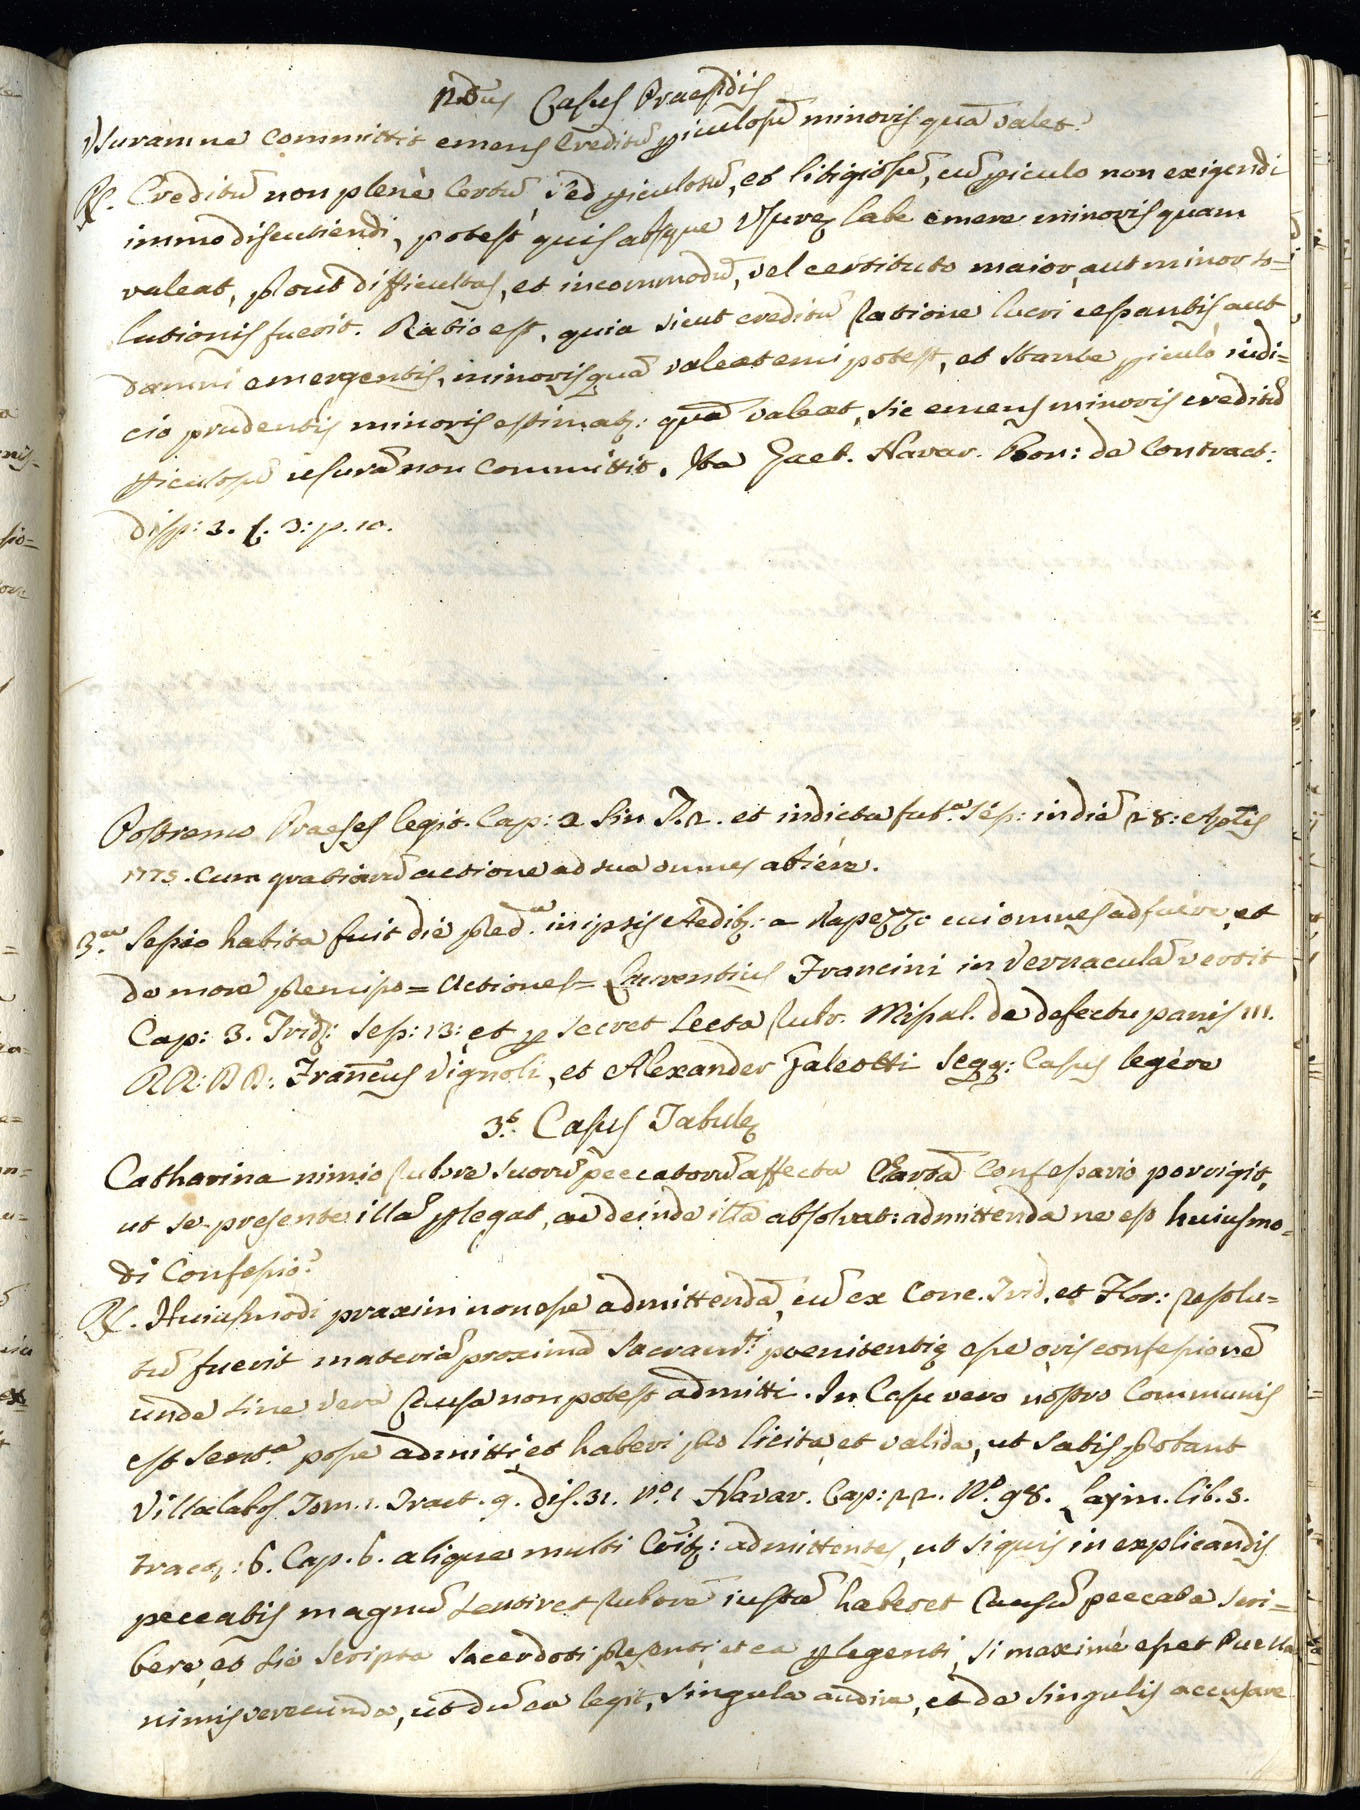 2.dus Casus Praesidis
Usuram ne committit emens Creditũ periculosũ minoris quã valet?
R. Creditũ non plenè certũ, sed periculosũ, et litigiosũ, cũ periculo non exigendi
immo discutiendi, potest quis absque Usuræ labe emere minoris quam
valeat, prout difficultas, et incommodũ, vel certitudo maior, aut minor so=
lutionis fuerit. Ratio est, quia sicut creditũ ratione lucri cessantis aut
damni emergentis, minoris quã valeat emi potest, et stante periculo iudi=
cio prudentis minoris estimatʒ: quã valeat, sic emens minoris creditũ
periculosũ usurã non committit. Ita Gaet. Navar. Bon: de Contract:
disp: 3. q. 3: p. 10.
Postremo Praeses legit Cap: 2 Sin T. 2. et indicta fut.ª Sess: in diẽ 28: Aplis
1775. cum gratiarũ actione ad sua omnes abiére.
3.ª Sessio habita fuit die pred.ª in ipsis Aedibʒ: a Rapezzo cui omnes adfuére, et
de more premisso = Actiones = Laurentius Francini in Vernaculã vertit
Cap: 3. Trid: Sess: 13: et per secret lecta rubr. Missal. de defectu panis III.
RR: DD: Franc̃us Vignoli, et Alexander Galeotti segq: Casus legére
3.s Casus Tabulæ
Catharina nimio rubore suorũ peccatorũ affecta Cartã Confessario porrigit,
ut se presente illã perlegat, ac deinde illã absolvat: admittenda ne est huiusmo=
di Confessio?
R. Huiusmodi praxim non esse admittendã, cũ ex Conc. Trid. et Flor: resolu=
tũ fuerit materiã proximã Sacram.ti poenitentiæ esse oris confessionẽ
unde sine vera Causa non potest admitti. In Casu vero nostro Communis
est sent.ª posse admitti, et haberi pro licita, et valida, ut satis probant
Villalabos Tom. 1. Tract. 9. dis. 31. N.º 1 Navar. Cap: 22. N.º 98. Laym. lib. 5.
tract: 6. Cap. 6. aliique multi admittentes, ut si quis in explicandis
peccatis magnũ sentiret ruborẽ iustã haberet Causã peccata scri=
bere, et sic scripta Sacerdoti presenti, et ea perlegenti, si maximè esset Puella
nimis verecunda, ut dũ ea legit, singula audire, et de singulis accusare